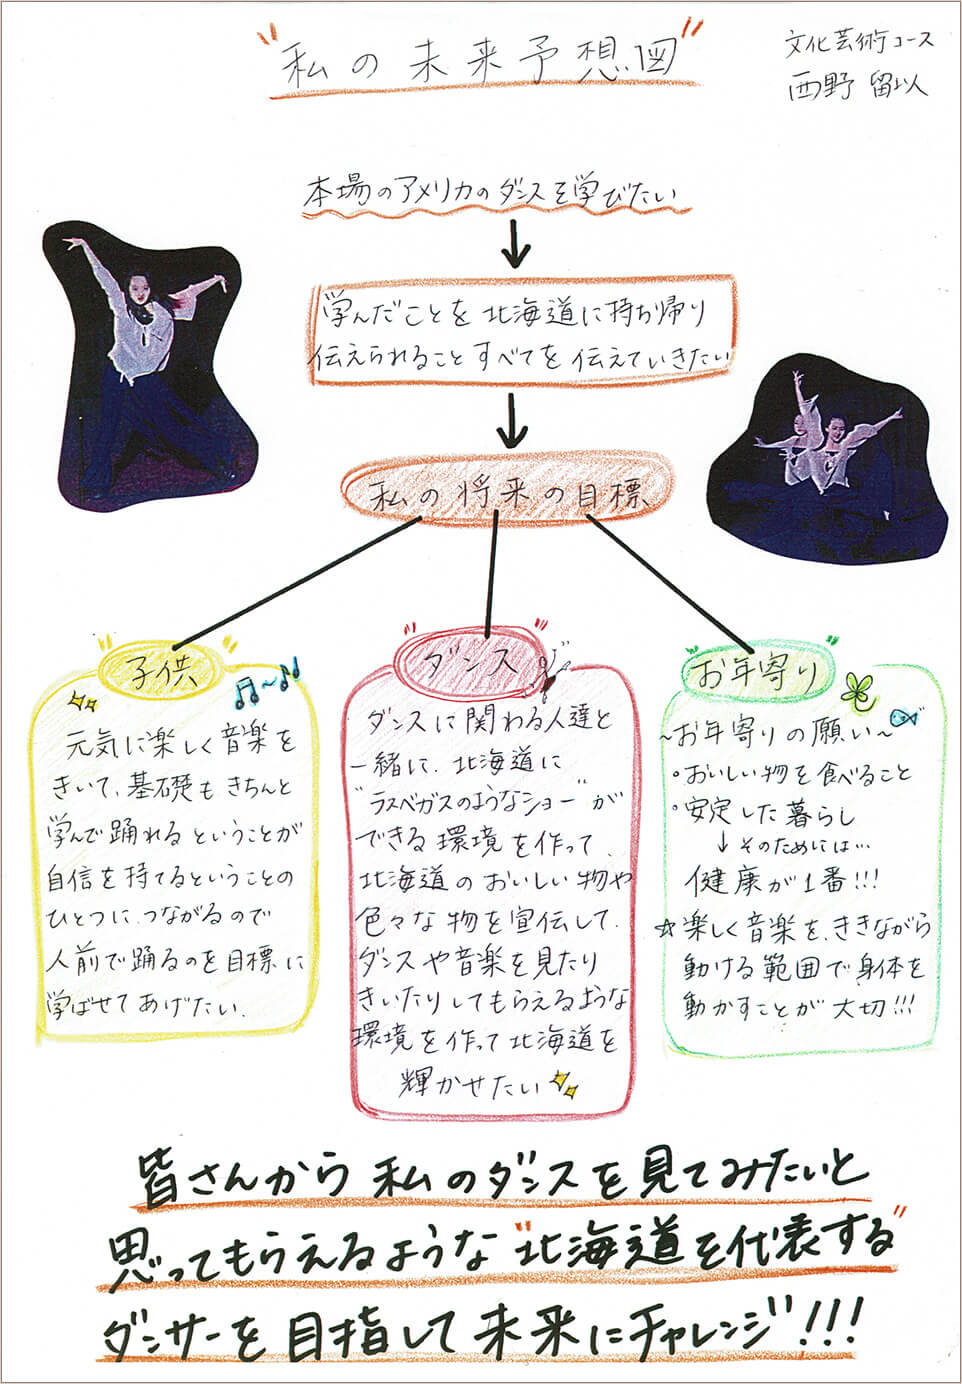 "私の未来予想図"
文化芸術コース
西野 留以
本場のアメリカのダンスを学びたい
学んだことを北海道に持ち帰り
伝えられることすべてを伝えていきたい
私の将来の目標
子供
元気に楽しく音楽を
きいて、基礎もきちんと
学んで踊れるということが
自信を持てるということの
ひとつに、つながるので
人前で踊るのを目標に
学ばせてあげたい.
ダンス
ダンスに関わる人達と
一緒に、北海道に
"ラスベガスのようなショー"が
できる環境を作って、
北海道のおいしい物や
色々な物を宣伝して、
ダンスや音楽を見たり
きいたりしてもらえるような
環境を作って北海道を
輝かせたい
お年寄り
~お年寄りの願い~
°おいしい物を食べること
°安定した暮らし
↓そのためには…
健康が1番!!!
☆楽しく音楽を、ききながら
動ける範囲で身体を
動かすことが大切!!!
皆さんから私のダンスを見てみたいと
思ってもらえるような"北海道を代表する"
ダンサーを目指して未来にチャレンジ!!!